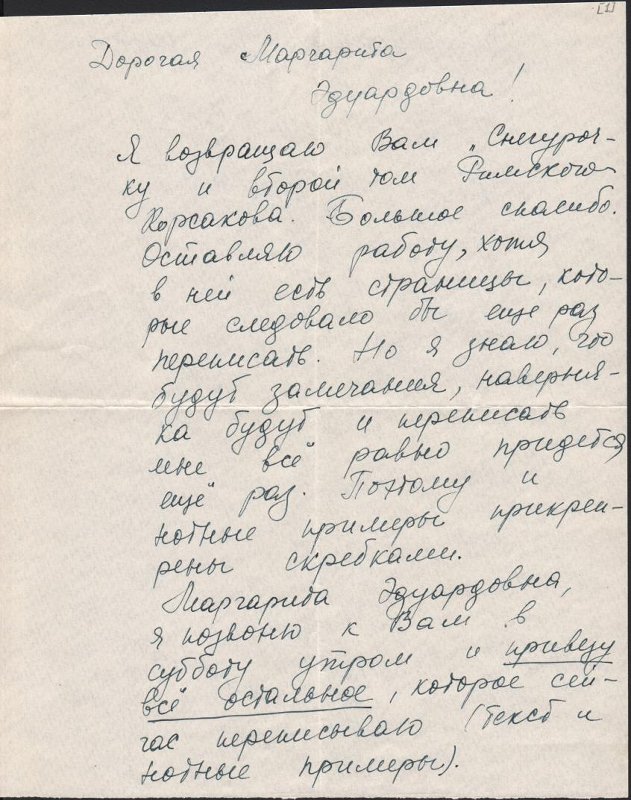 [1]
Дорогая Маргарита
Эдуардовна!
Я возвращаю Вам „Снегуроч-
ку и второй том Римского-
Корсакова. Большое спасибо.
Оставляю работу, хотя
в ней есть страницы, кото-
рые следовало бы еще раз
переписать. Но я знаю, что
будут замечания, наверня-
ка будут и переписать
мне всё равно придется
ещё раз. Поэтому и
нотные примеры прикреп-
лены скрепками.
Маргарита Эдуардовна,
я позвоню к Вам в
субботу утром и привезу
всё остальное, которое сей-
час переписываю (текст и
нотные примеры).